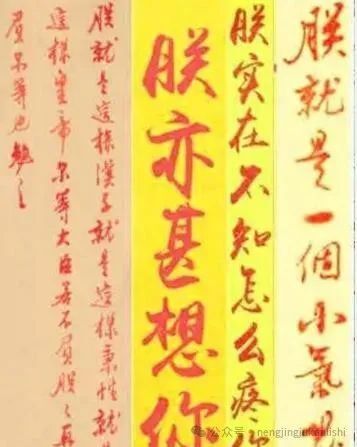 朕就是一個小氣
朕实在不知怎么疼
朕亦甚想你
朕就是這樣漢子就是這樣秉性就
這樣皇帝尔等大臣若不負朕々再
負尔等也勉之
公众号 · nengjingjukanlishi